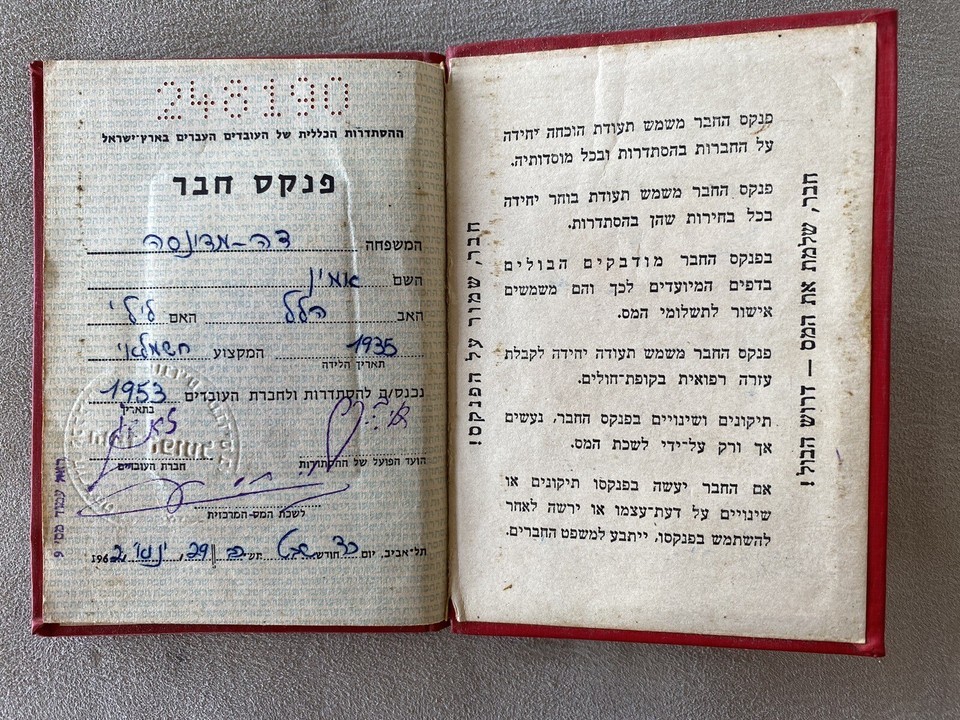 248190
ההסתדרות הכללית של העובדים העברים בארץ-ישראל
פנקס חבר
המשפחה דה-מדינסה
השם אמין
האב הלל האם לילי
1935 המקצוע חשמלאי
תאריך הלידה
נכנס/ם להסתדרות ולחברת העובדים 1953
בתאריך
הועד הפועל של ההסתדרות חברת העובדים
לשכת המס-המרכזית
תל-אביב, יום כד חודש שבט תש"כב 29, ינואר 1962
ראה עמוד מס' 9
חבר, שמור על הפנקס!
פנקס החבר משמש תעודת הוכחה יחידה
על החברות בהסתדרות ובכל מוסדותיה.
פנקס החבר משמש תעודת בוחר יחידה
בכל בחירות שהן בהסתדרות.
בפנקס החבר מודבקים הבולים
בדפים המיועדים לכך והם משמשים
אישור לתשלומי המס.
פנקס החבר משמש תעודה יחידה לקבלת
עזרה רפואית בקופת-חולים.
תיקונים ושינויים בפנקס החבר, נעשים
אך ורק על-ידי לשכת המס.
אם החבר יעשה בפנקסו תיקונים או
שינויים על דעת-עצמו או ירשה לאחר
להשתמש בפנקסו, ייתבע למשפט החברים.
חבר, שלמת את המס — דרוש הבול!